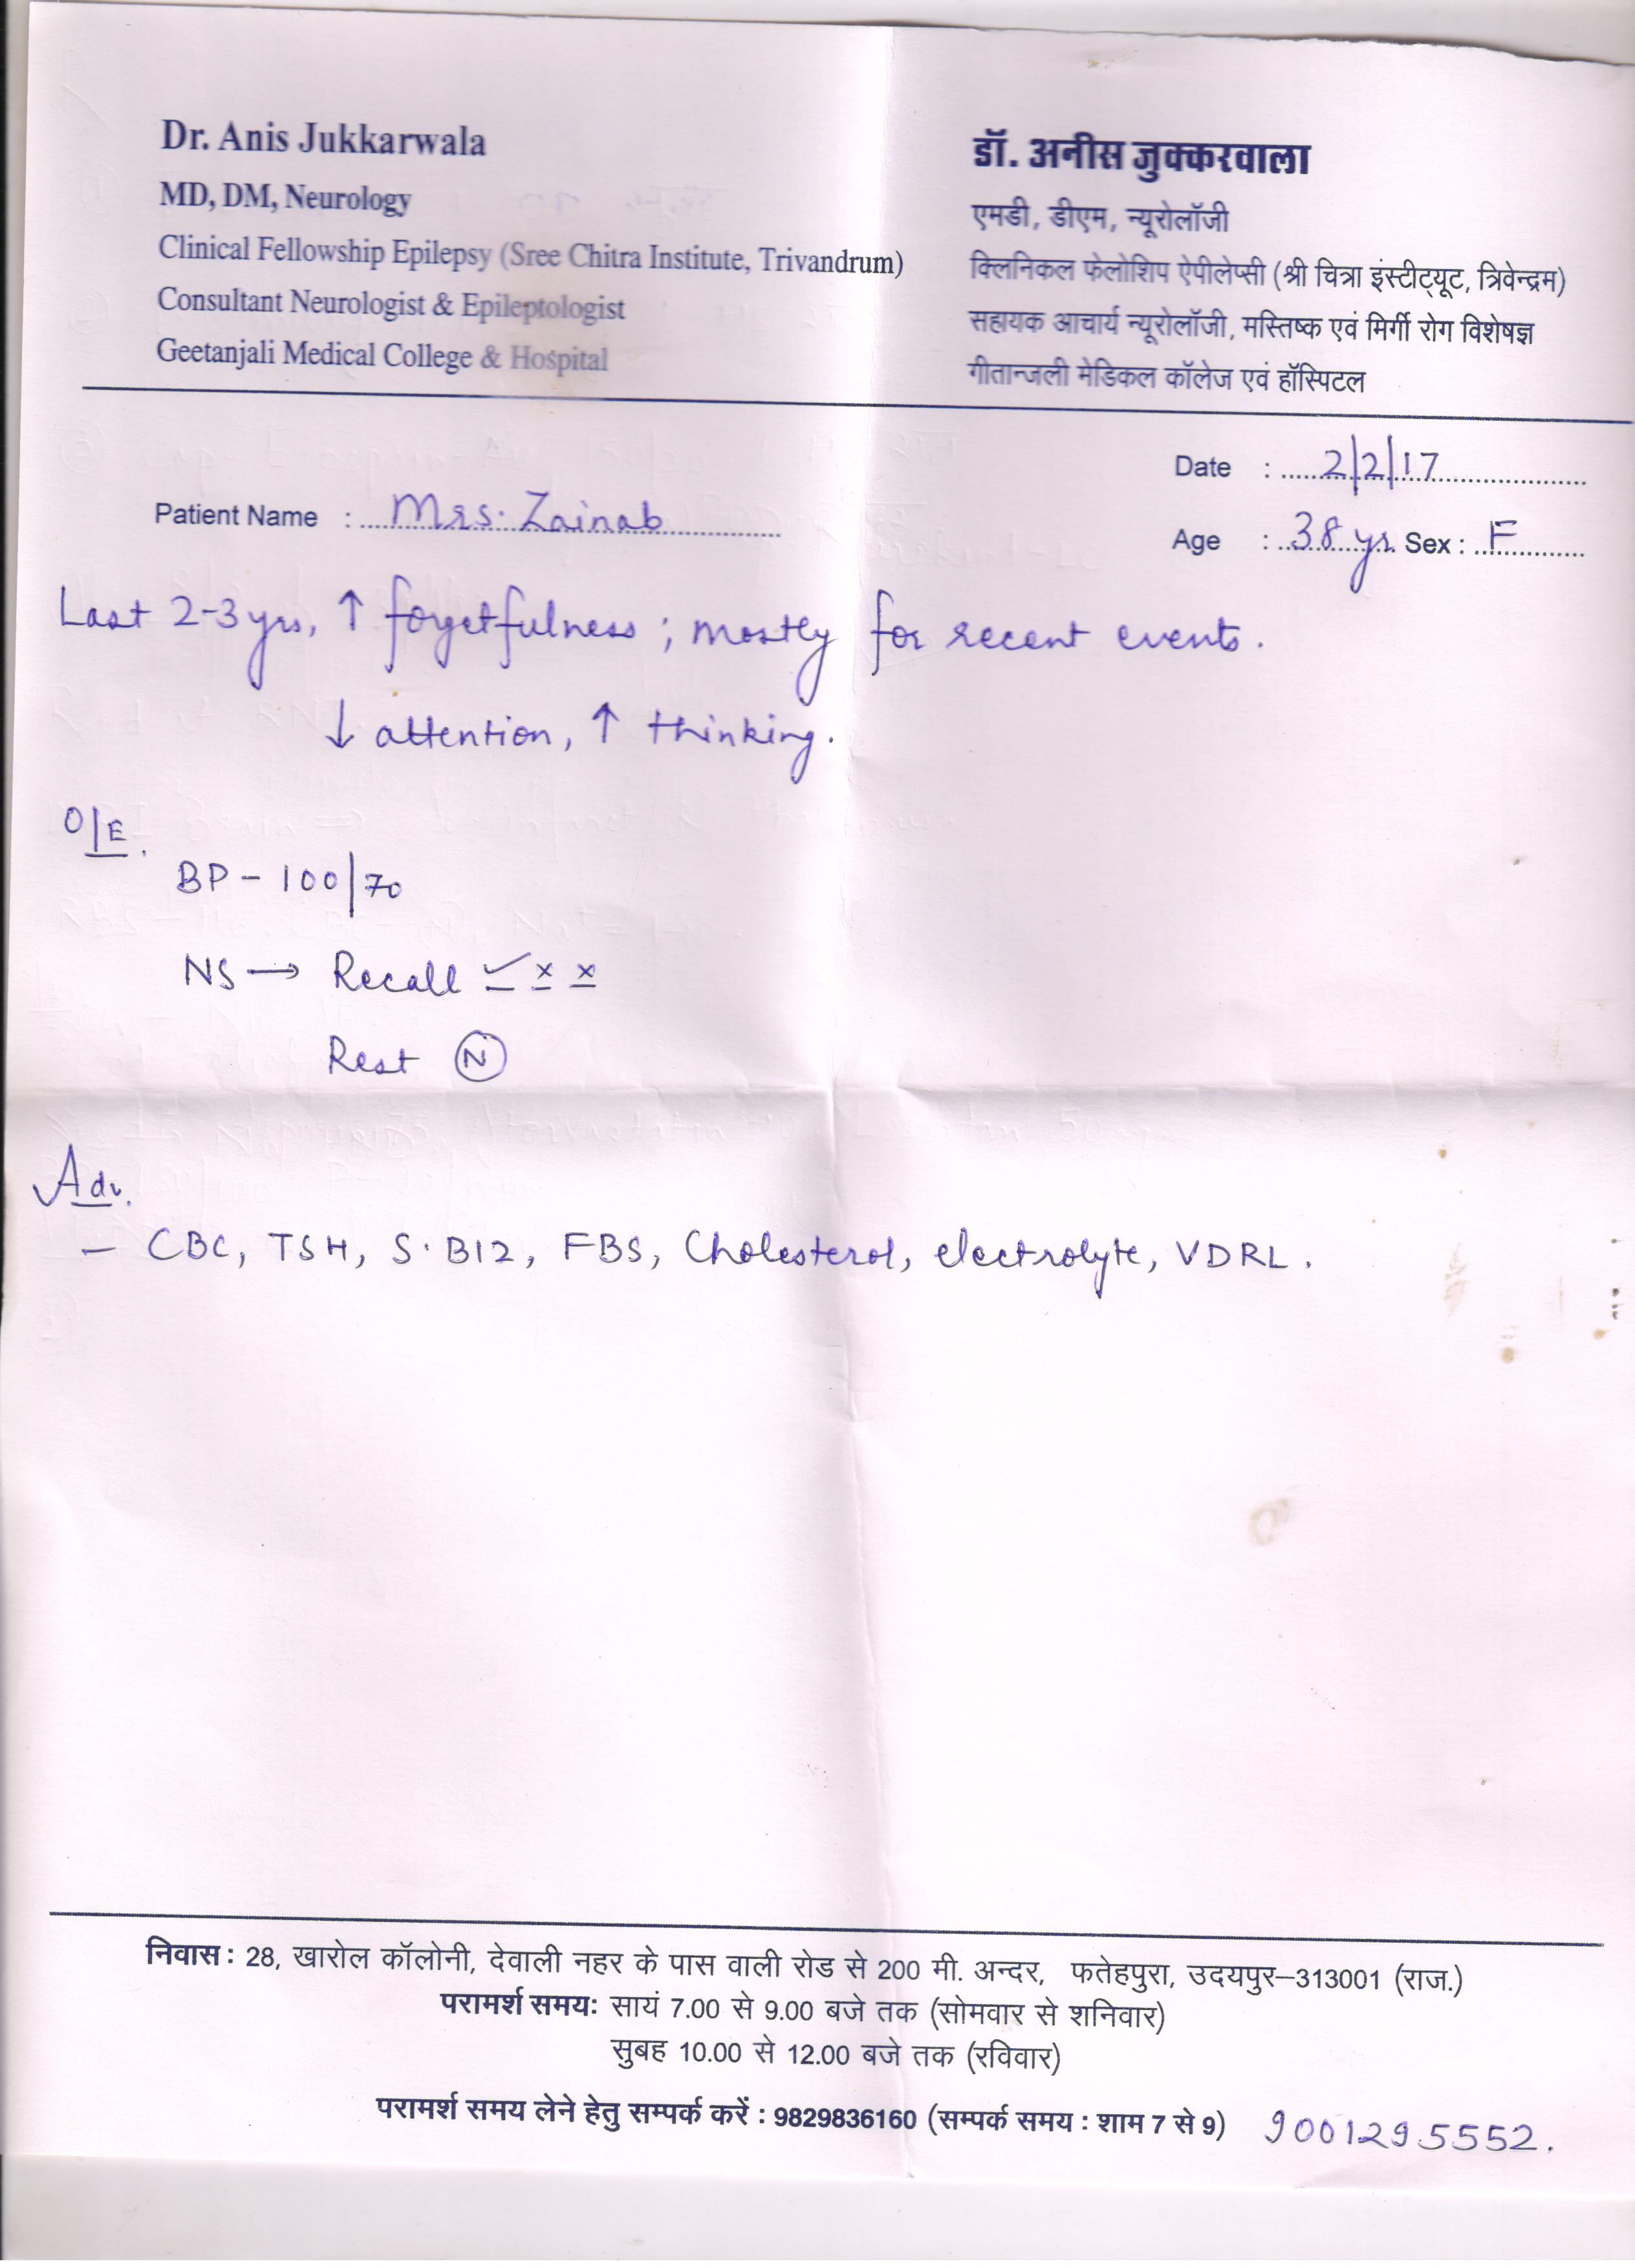 Dr. Anis Jukkarwala
MD, DM, Neurology
Clinical Fellowship Epilepsy (Sree Chitra Institute, Trivandrum)
Consultant Neurologist & Epileptologist
Geetanjali Medical College & Hospital
डॉ. अनीस जुक्करवाला
एमडी, डीएम, न्यूरोलॉजी
क्लिनिकल फेलोशिप ऐपीलेप्सी (श्री चित्रा इंस्टीट्यूट, त्रिवेन्द्रम)
सहायक आचार्य न्यूरोलॉजी, मस्तिष्क एवं मिर्गी रोग विशेषज्ञ
गीतान्जली मेडिकल कॉलेज एवं हॉस्पिटल
Date : 2/2/17
Patient Name : Mrs. Zainab
Age : 38 yr Sex : F
Last 2-3 yrs, ↑ forgetfulness ; mostly for recent events.
↓ attention, ↑ thinking.
O/E.
BP - 100/70
NS → Recall ✓ x x
Rest Ⓝ
Adv.
- CBC, TSH, S.B12, FBS, Cholesterol, electrolyte, VDRL.
निवास : 28, खारोल कॉलोनी, देवाली नहर के पास वाली रोड से 200 मी. अन्दर, फतेहपुरा, उदयपुर-313001 (राज.)
परामर्श समय: सायं 7.00 से 9.00 बजे तक (सोमवार से शनिवार)
सुबह 10.00 से 12.00 बजे तक (रविवार)
परामर्श समय लेने हेतु सम्पर्क करें : 9829836160 (सम्पर्क समय : शाम 7 से 9) 9001295552.